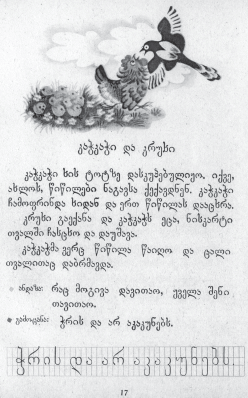 კაჭკაჭი და კრუხი
კაჭკაჭი ხის ტოტზე დასკუპებულიყო. იქვე,
ახლოს, წიწილები ნაგავსა ქექავდნენ. კაჭკაჭი
ჩამოფრინდა ხიდან და ერთ წიწილას დააცხრა.
კრუხი გაექანა და კაჭკაჭს ეცა, ნისკარტი
თვალში ჩასცხო და დაუშავა.
კაჭკაჭმა ვერც წიწილა წაიღო და ცალი
თვალითაც დაბრმავდა.
ანდაზა: რაც მოგივა დავითაო, ყველა შენი
თავითაო.
გამოცანა: ჭრის და არ აკაკუნებს.
ჭრის და არ აკაკუნებს.
17